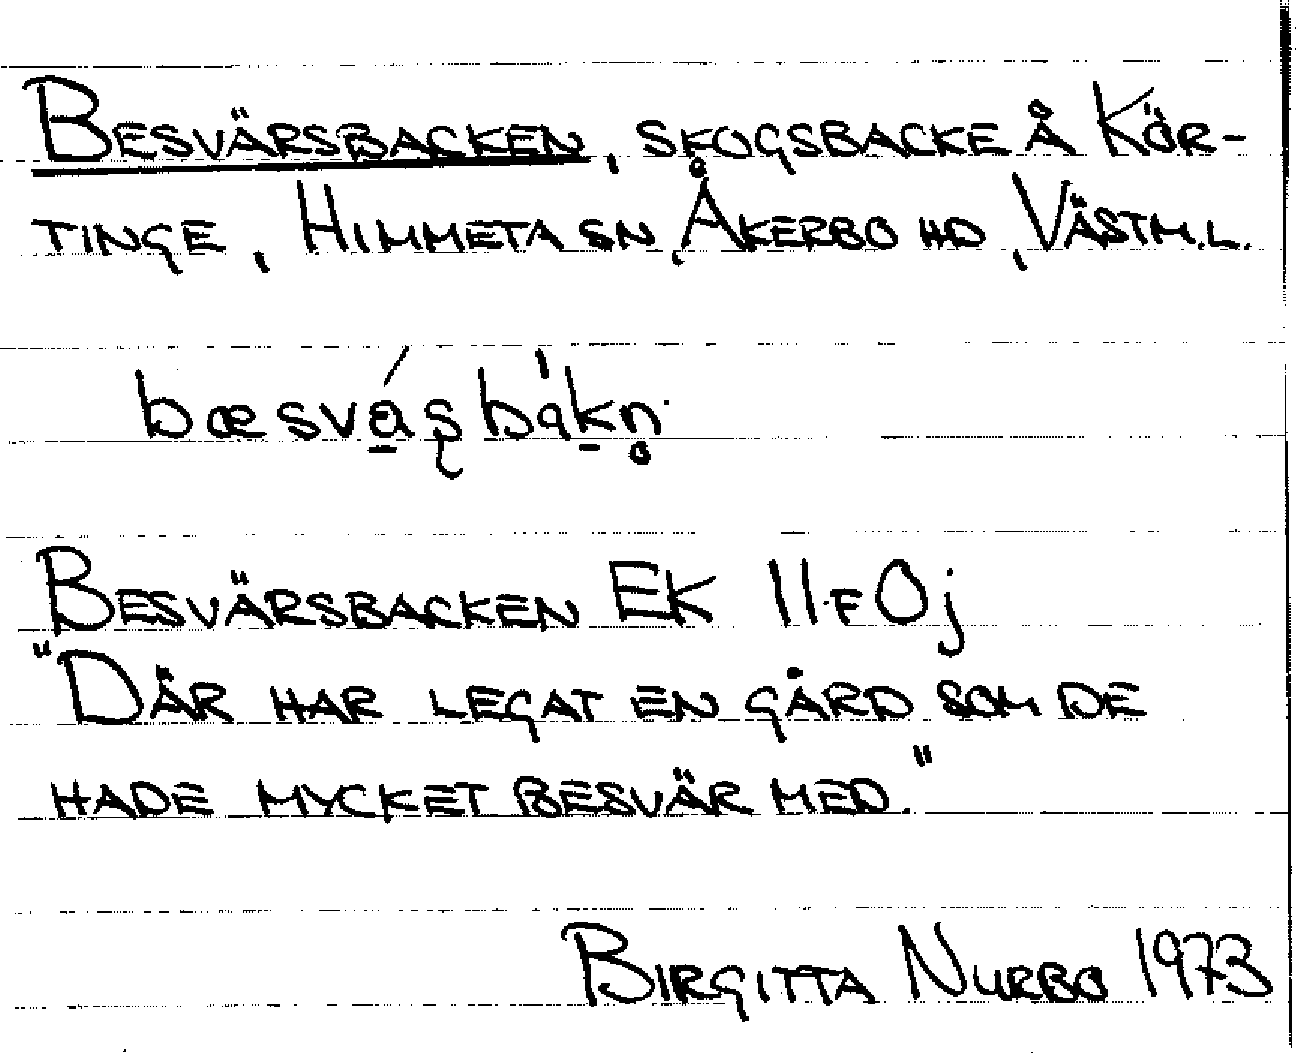 Besvärsbacken, skogsbacke å Kör-
tinge, Himmeta sn, Åkerbo hd, Västm.l.
bæsvá̱ʂbàḵn̥
Besvärsbacken Ek 11F0j
"Där har legat en gård som de
hade mycket besvär med."
Birgitta Nurbo 1973